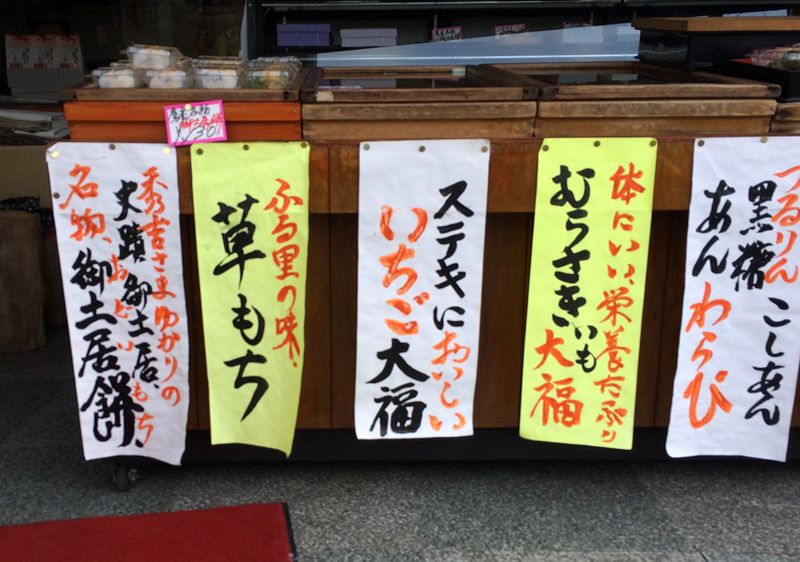 秀吉さまゆかりの
史蹟御土居、
おどいもち
名物、御土居餅
ふる里の味、
草もち
ステキにおいしい
いちご大福
体にいい、栄養たっぷり
むらさきいも大福
つるりん
こしあん
黒糖
あん
わらび